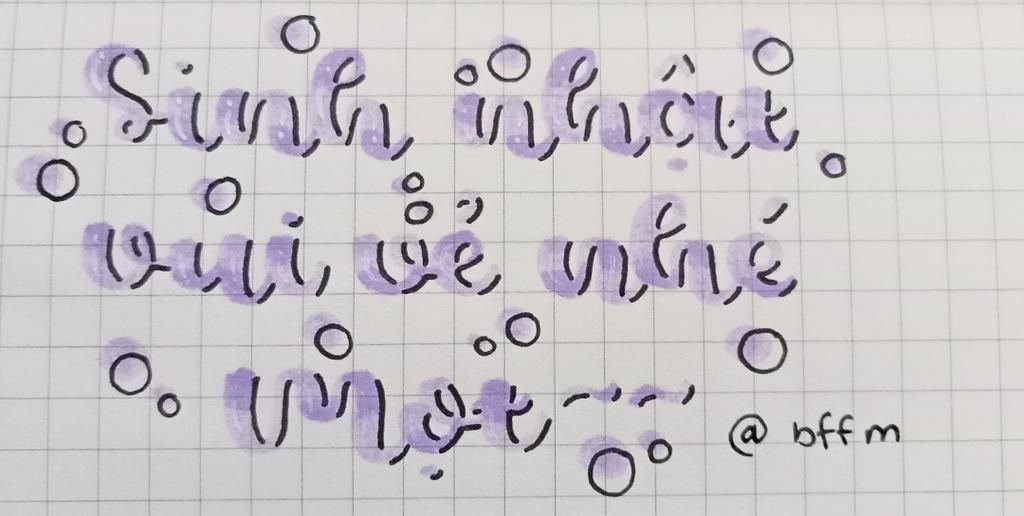 Sinh nhật
vui vẻ nhé
Mọt ~ ~
@ bffm